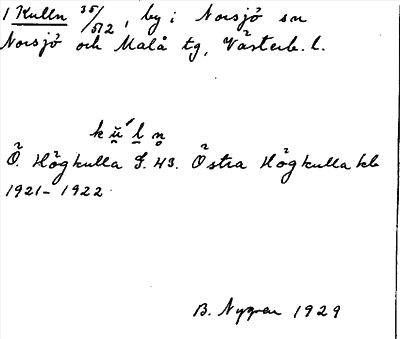 1 Kulln 35/512, by i Norsjö sn
Norsjö och Malå tg, Västerb. l.
kŭ́ln̥
Ö. Högkulla S. 43. Östra Högkulla kb
1921-1922
B. Nygren 1929